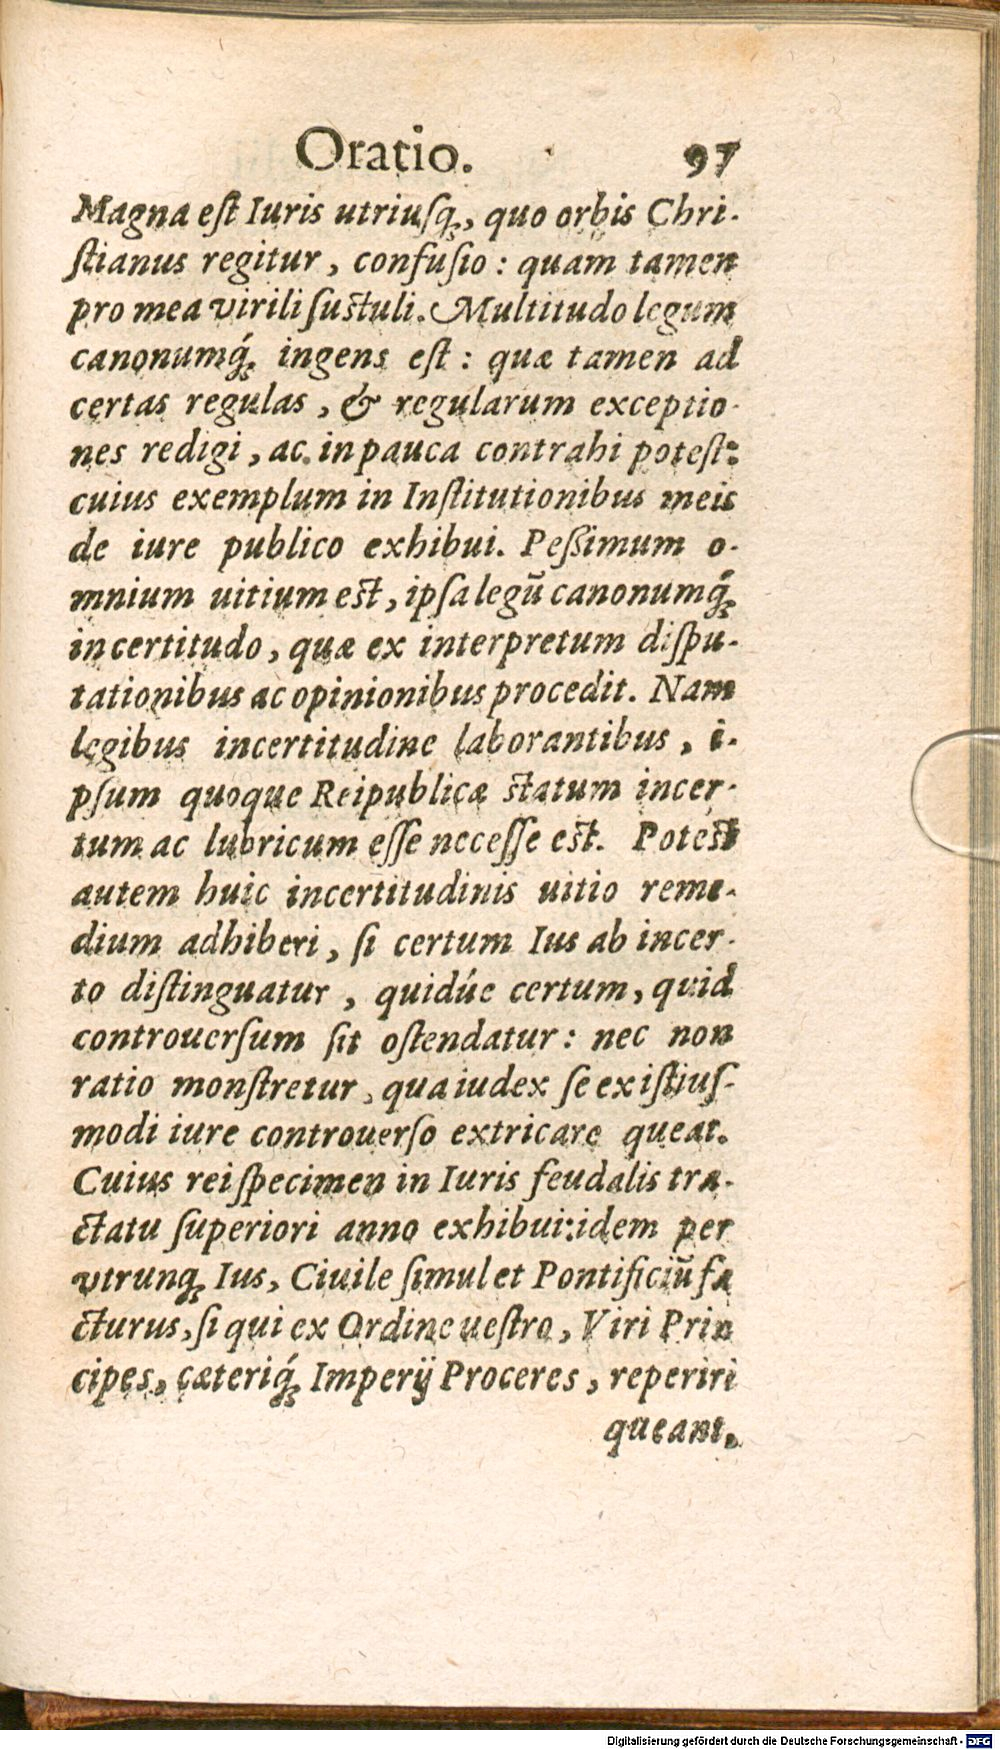 Oratio. 97
Magna eſt Iuris utriuſq́ꝫ, quo orbis Chri-
ſtianus regitur, confuſio: quam tamen
pro mea virili ſuſtuli. Multitudo legum
canonumq́ꝫ ingens eſt: quæ tamen ad
certas regulas, & regularum exceptio-
nes redigi, ac in pauca contrahi poteſt:
cuius exemplum in Inſtitutionibus meis
de iure publico exhibui. Peſſimum o-
mnium uitium eſt, ipſa legū canonumq́ꝫ
incertitudo, quæ ex interpretum diſpu-
tationibus ac opinionibus procedit. Nam
legibus incertitudine laborantibus, i-
pſum quoque Reipublicæ ſtatum incer-
tum ac lubricum eſſe neceſſe eſt. Poteſt
autem huic incertitudinis uitio reme-
dium adhiberi, ſi certum Ius ab incer-
to diſtinguatur, quidúe certum, quid
controuerſum ſit oſtendatur: nec non
ratio monſtretur, qua iudex ſe ex iſtiuſ-
modi iure controuerſo extricare queat.
Cuius rei ſpecimen in Iuris feudalis tra-
ctatu ſuperiori anno exhibui: idem per
vtrunqꝫ Ius, Ciuile ſimul et Pontificiū fa
cturus, ſi qui ex Ordine ueſtro, Viri Prin
cipes, cæteriq́ꝫ Imperij Proceres, reperiri
queant,
Digitalisierung gefördert durch die Deutsche Forschungsgemeinschaft - DFG